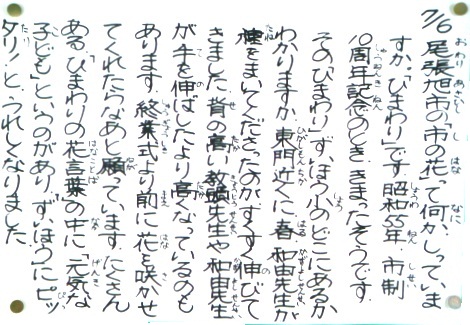 7/6 尾張旭市の「市の花」って何かしっていま
すか。「ひまわり」です。昭和55年、市制
10周年記念のとき、きまったそうです。
そのひまわり、ずいほう小のどこにあるか
わかりますか。東門近くに、春、和田先生が
種をまいてくださったのが、すくすく伸びて
きました。背の高い教頭先生や和田先生
が手を伸ばしたより高くなっているのも
あります。終業式より前に花を咲かせ
てくれたらなあと願っています。たくさん
ある「ひまわりの花言葉」の中に「元気な
子ども」というのがあり、“ずいほうにピッ
タリ！”と、うれしくなりました。